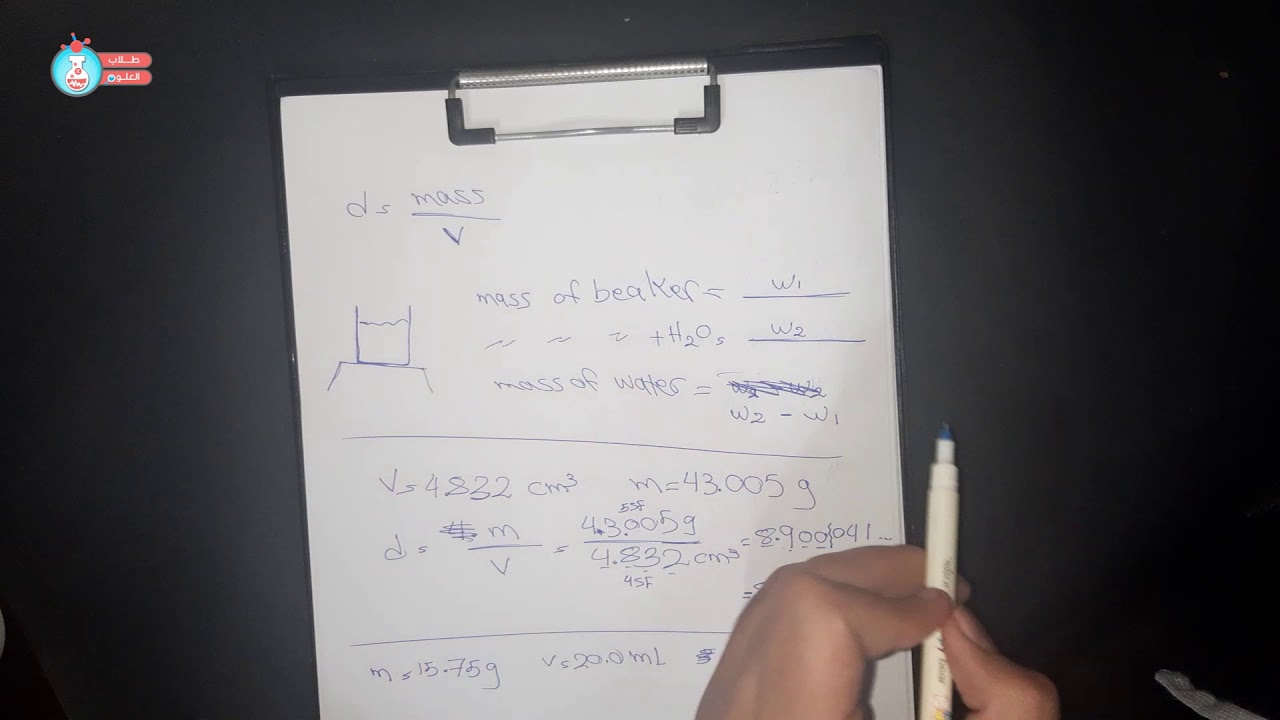 طلاب
العلوم
d = mass / V
mass of beaker = W1
〃 〃 〃 + H2O = W2
mass of water =
W2 - W1
V = 4.832 cm³ m = 43.005 g
5SF
d = m / V = 43.005g / 4.832 cm³ = 8.900041...
4SF
=
m = 15.75g V = 20.0 ml